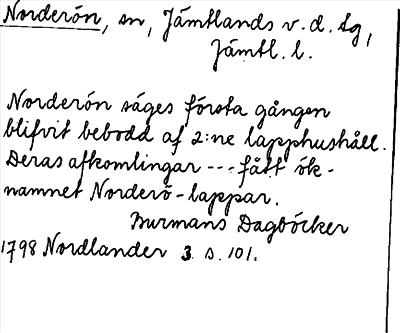 Norderön, sn, Jämtlands v. d. tg,
Jämtl. l.
Norderön säges första gången
blifvit bebodd af 2:ne lapphushåll.
Deras afkomlingar --- fått ök-
namnet Norderö-lappar.
Burmans Dagböcker
1798 Nordlander 3 s. 101.